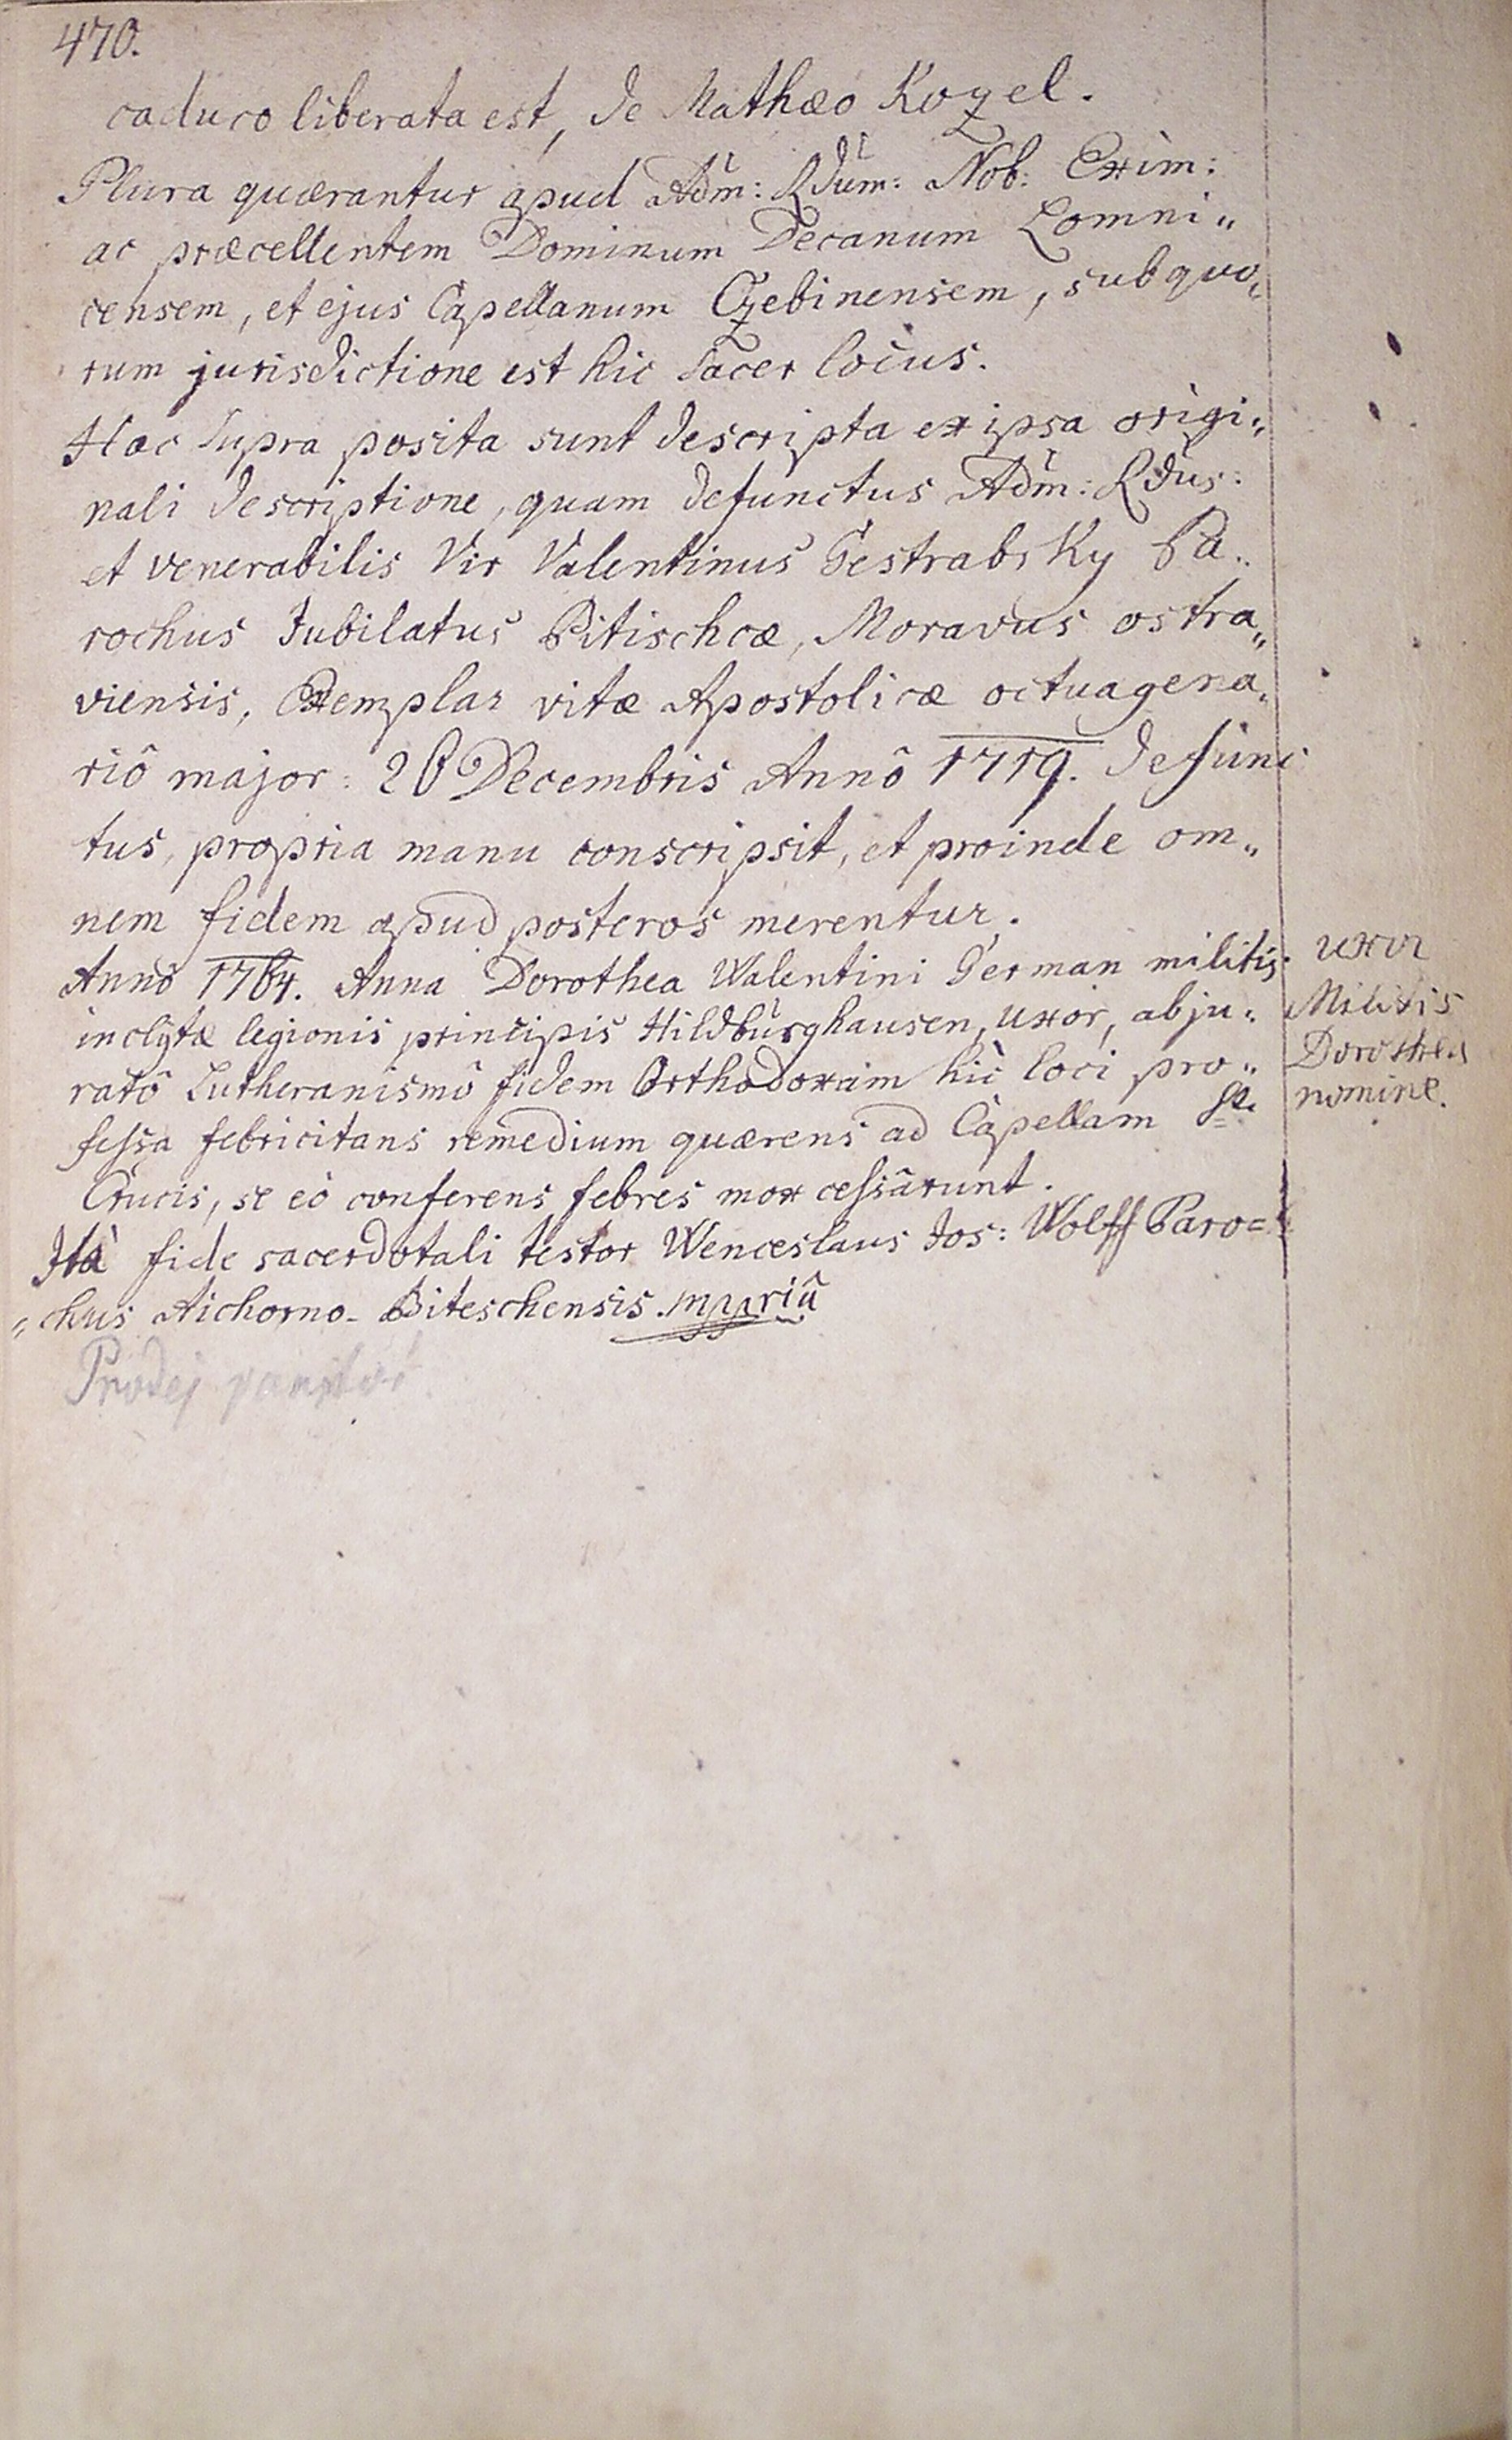 470.
caduco liberata est, de Mathæo Kozel.
Plura quærantur apud Adm: Rdum: Nob: Exim:
ac præcellentem Dominum Decanum Lomni„
censem, et ejus Capellanum Czebinensem, sub quo„
rum jurisdictione est hic Sacer locus.
Hæc Supra posita sunt descripta ex ipsa origi„
nali descriptione, quam defunctus Adm: Rdus:
et venerabilis Vir Valentinus Gestrabsky Pa„
rochus Jubilatus Bitischcæ, Moravus ostra„
viensis, Exemplar vitæ Apostolicæ octuagena„
riô major: 26 Decembris Annô 1719. defunc
tus, propria manu conscripsit, et proinde om„
nem fidem apud posteros merentur.
Annô 1764. Anna Dorothea Walentini German militis
inclytæ legionis principis Hildburghausen, uxor, abju„
ratô Lutheranismô fidem Orthodoxam hic loci pro„
fessa febricitans remedium quærens ad Capellam St.
Crucis, se eò conferens febres mox cessârunt.
Ità fide sacerdotali testor Wenceslaus Jos: Wolff Paro=
„chus Aichorno-Biteschensis. mppriâ
Prodej
uxor
Militis
Dorothea
nomine.